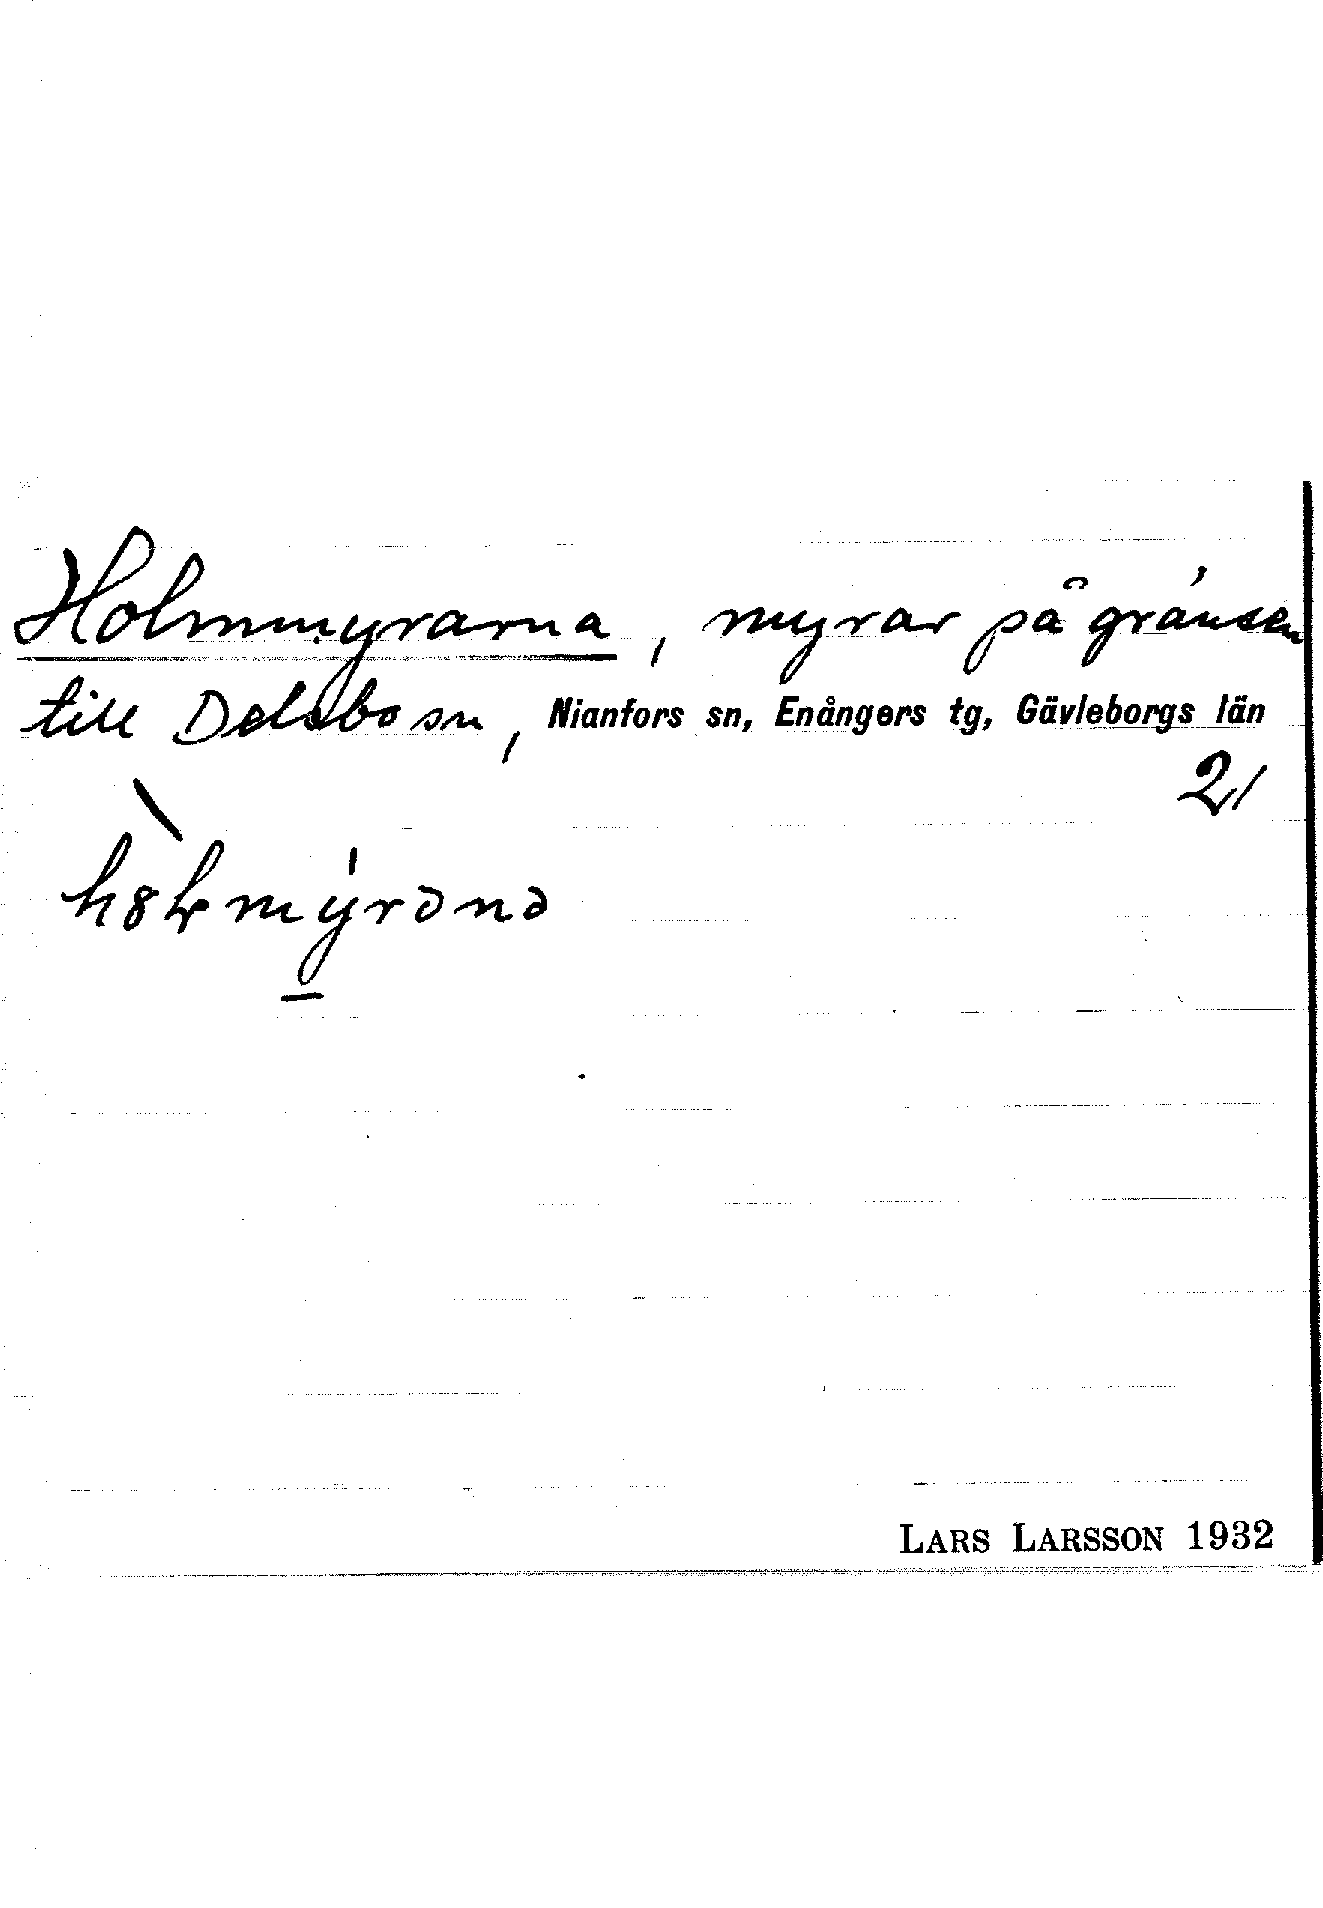 Holmmyrarna, myrar på gränsen
till Delsbo sn, Nianfors sn, Enångers tg, Gävleborgs län
21
LARS LARSSON 1932